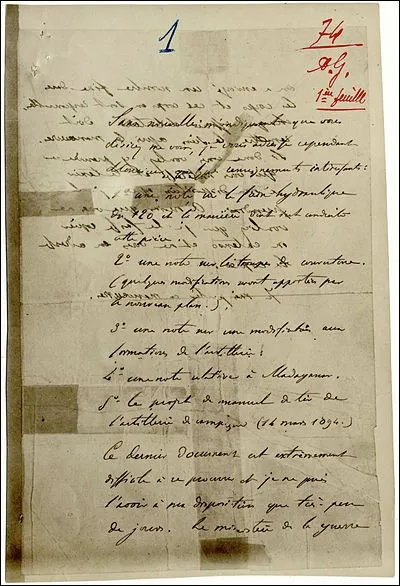 1
74
1ère feuille
Sans nouvelles m'indiquant que vous
désirez me voir, je vous adresse cependant
Monsieur quelques renseignements intéressants :
1º une note sur le frein hydraulique
du 120 et la manière dont s'est conduite
cette pièce.
2º une note sur les troupes de couverture.
(quelques modifications seront apportées par
le nouveau plan.)
3º une note sur une modification aux
formations de l'artillerie :
4º une note relative à Madagascar.
5º le projet de manuel de tir de
l'artillerie de campagne (14 mars 1894.)
Ce dernier document est extrêmement
difficile à se procurer et je ne puis
l'avoir à ma disposition que très peu
de jours. Le ministère de la guerre